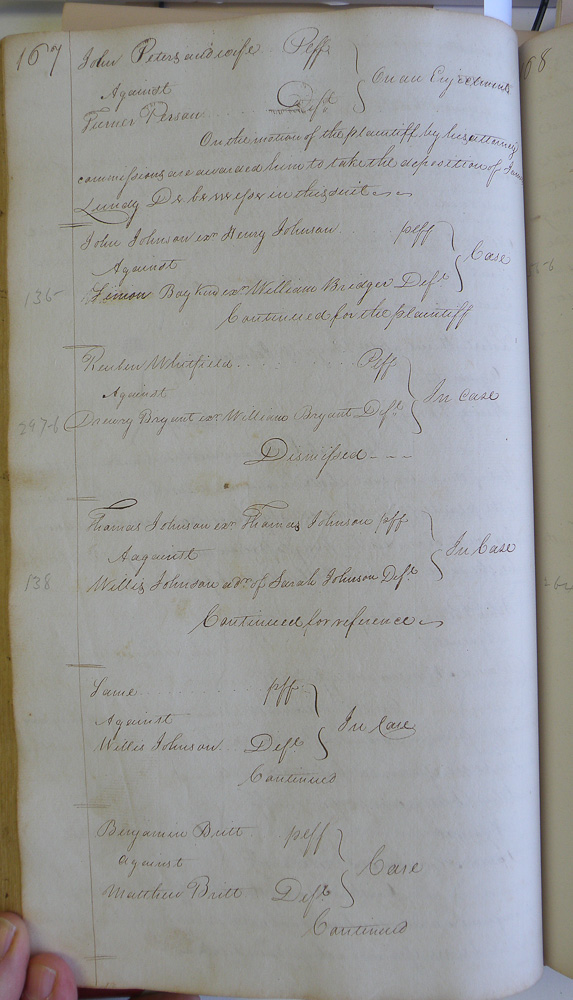 167
John Peters and wife Peff
Against
Turner Person Deft
On an Ejectment
On the motion of the plaintiff by his attorney
commissions are awarded him to take the deposition of
Lundy in this suit
John Johnson exr Henry Johnson peff
Against
Case
136
Simon Boykin exr William Bridger Deft
Continued for the plaintiff
Reuben Whitfield Peff
Against
In Case
297-6
Drewry Bryant exr William Bryant Deft
Dismissed
Thomas Johnson exr Thomas Johnson pff
Aagainst
In Case
138
Willis Johnson adr. of Sarah Johnson Deft
Continued for reference
Same pff
Against
In Case
Willis Johnson Deft
Continued
Benjamin Britt peff
against
Case
Matthew Britt Deft
Continued
68